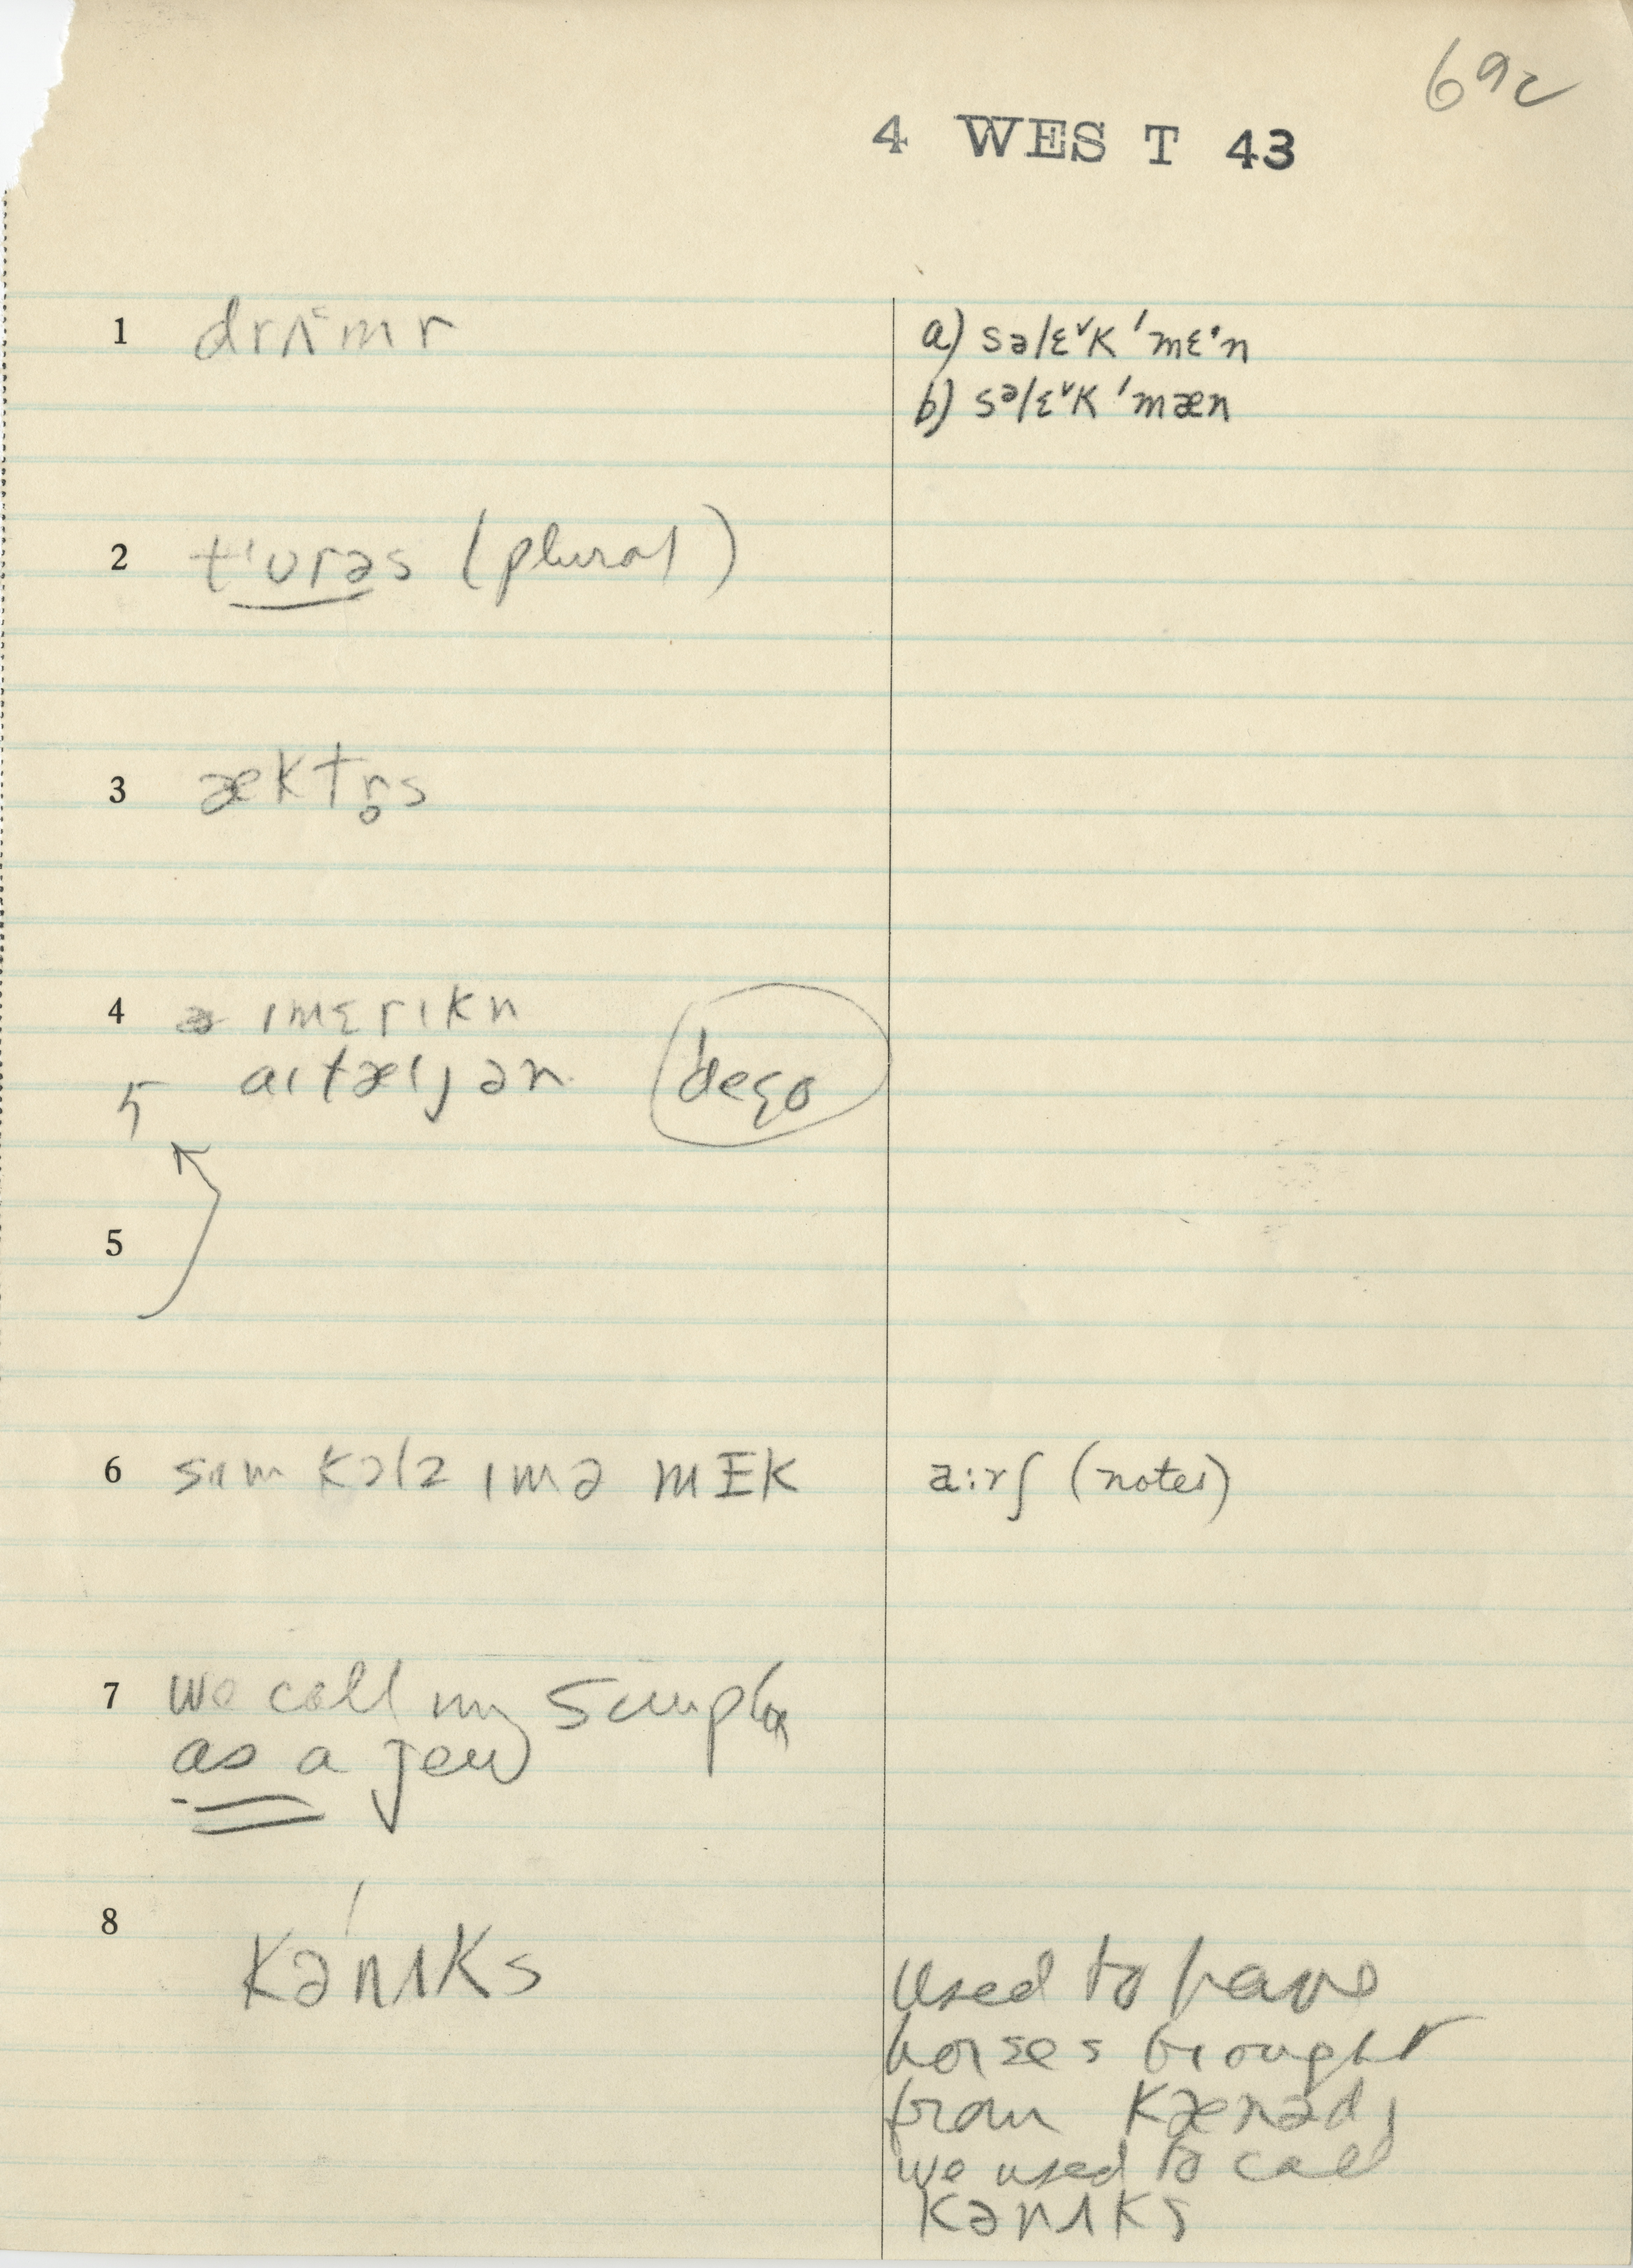 69c
4 WEST 43
1 drʌ˂mr
a) səlɛ˅k ˈmɛ·n
b) səlɛ˅k ˈmæn
2 tʻʊrəs (plural)
3 æktr̥s
4 ɪmɛrɪkn
aɪtæljən dego
5
6 sʌm kɔlz ɪmə mɪk
a:rʃ (notes)
7 we call my
as a jew
8 kənʌks
Used to have
horses brought
from kænədɪ
we used to call
kənʌks